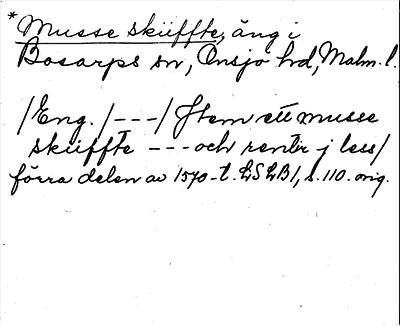 *Musse skiiffte, äng i
Bosarps sn, Onsjö hd, Malm. l.
/Eng./---/Item ett musse
skiiffte --- och rentir j less/
förra delen av 1570-t. LSLB1, s. 110. orig.